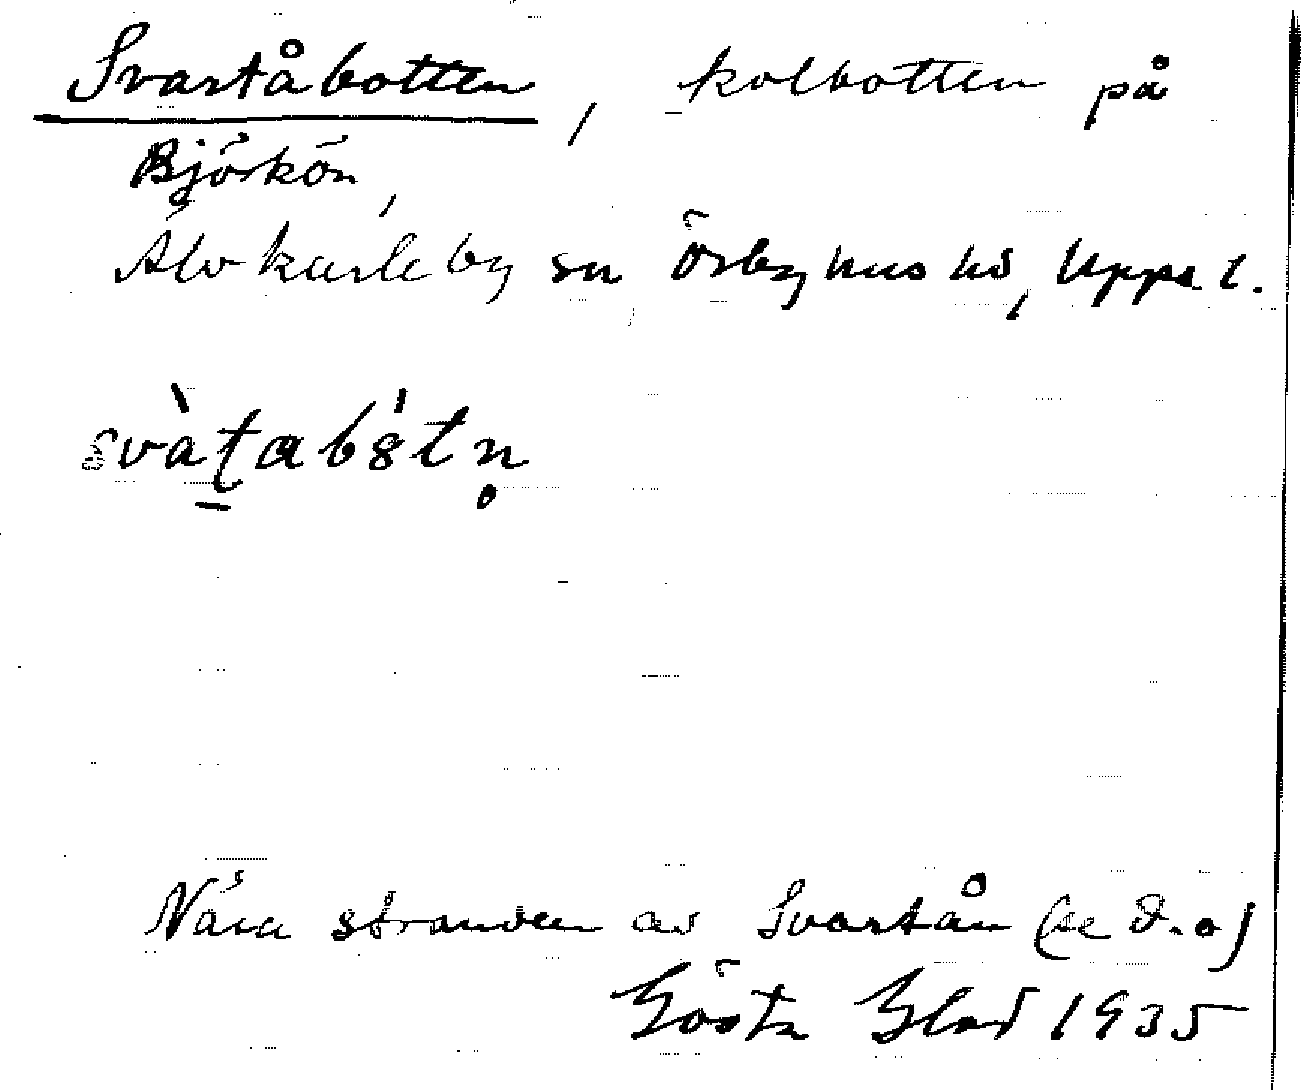 Svartåbotten, kolbotten på
Björkön,
Älvkarleby sn Örbyhus hd, Upps. l.
svàtabòtn̥
Nära stranden av Svartån (se d.o)
Gösta Blad 1935